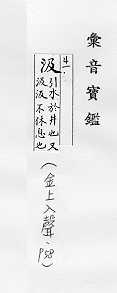 彙音寶鑑
4一.
汲
引水於井也又
汲汲不休息也
(金上入聲.958)